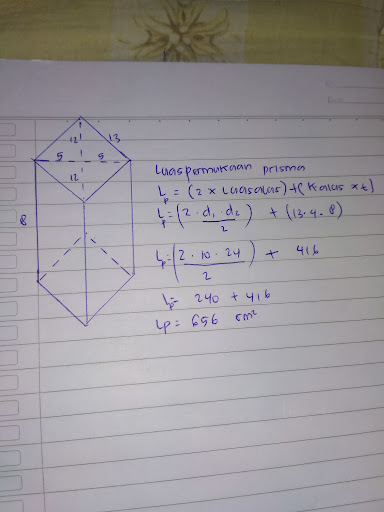 12
13
5
5
12
8
Luas permukaan prisma
Lp = (2 x Luas alas) + (K alas x t)
Lp = (2 . d1 . d2 / 2) + (13 . 4 . 8)
Lp = (2 . 10 . 24 / 2) + 416
Lp = 240 + 416
Lp = 656 cm²